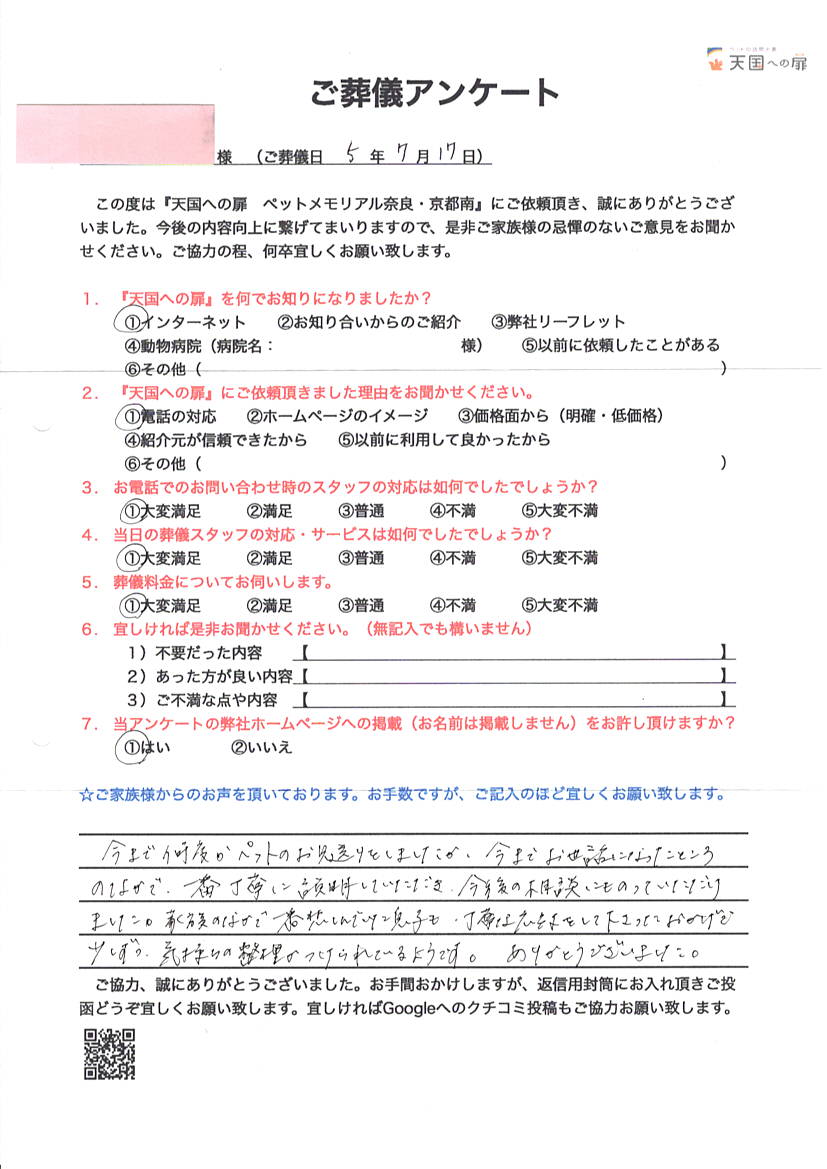 ペットの訪問火葬
天国への扉
ご葬儀アンケート
様 （ご葬儀日 5 年 7 月 17 日）
この度は『天国への扉 ペットメモリアル奈良・京都南』にご依頼頂き、誠にありがとうござ
いました。今後の内容向上に繋げてまいりますので、是非ご家族様の忌憚のないご意見をお聞か
せください。ご協力の程、何卒宜しくお願い致します。
1． 『天国への扉』を何でお知りになりましたか？
①インターネット ②お知り合いからのご紹介 ③弊社リーフレット
④動物病院（病院名： 様） ⑤以前に依頼したことがある
⑥その他（ ）
2． 『天国への扉』にご依頼頂きました理由をお聞かせください。
①電話の対応 ②ホームページのイメージ ③価格面から（明確・低価格）
④紹介元が信頼できたから ⑤以前に利用して良かったから
⑥その他（ ）
3． お電話でのお問い合わせ時のスタッフの対応は如何でしたでしょうか？
①大変満足 ②満足 ③普通 ④不満 ⑤大変不満
4． 当日の葬儀スタッフの対応・サービスは如何でしたでしょうか？
①大変満足 ②満足 ③普通 ④不満 ⑤大変不満
5． 葬儀料金についてお伺いします。
①大変満足 ②満足 ③普通 ④不満 ⑤大変不満
6． 宜しければ是非お聞かせください。（無記入でも構いません）
1）不要だった内容 【 】
2）あった方が良い内容【 】
3）ご不満な点や内容 【 】
7． 当アンケートの弊社ホームページへの掲載（お名前は掲載しません）をお許し頂けますか？
①はい ②いいえ
☆ご家族様からのお声を頂いております。お手数ですが、ご記入のほど宜しくお願い致します。
今まで何度かペットのお見送りをしましたが、今までお世話になったところ
のなかで、一番丁寧に説明していただき、今後の相談にものっていただけ
ました。家族のなかで一番悲しんでいた息子も、丁寧なをして下さったおかげで
少しずつ、気持ちの整理がつけられているようです。 ありがとうございました。
ご協力、誠にありがとうございました。お手間おかけしますが、返信用封筒にお入れ頂きご投
函どうぞ宜しくお願い致します。宜しければGoogleへのクチコミ投稿もご協力お願い致します。